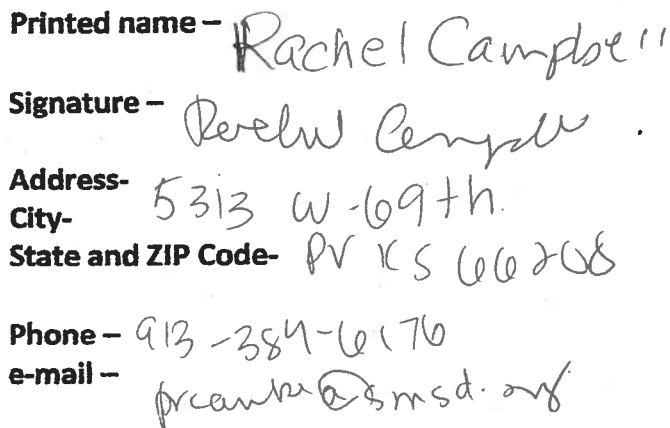 Printed name – Rachel Campbell
Signature – Rachel Campbell
Address- 5313 W-69th.
City-
State and ZIP Code- PV KS 66208
Phone – 913-384-6176
e-mail –